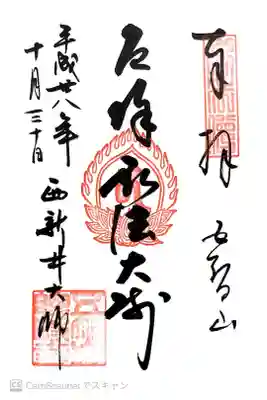 奉拝 五智山
厄除 弘法大師
平成廿八年
十月三十日
西新井大師
CS CamScanner でスキャン